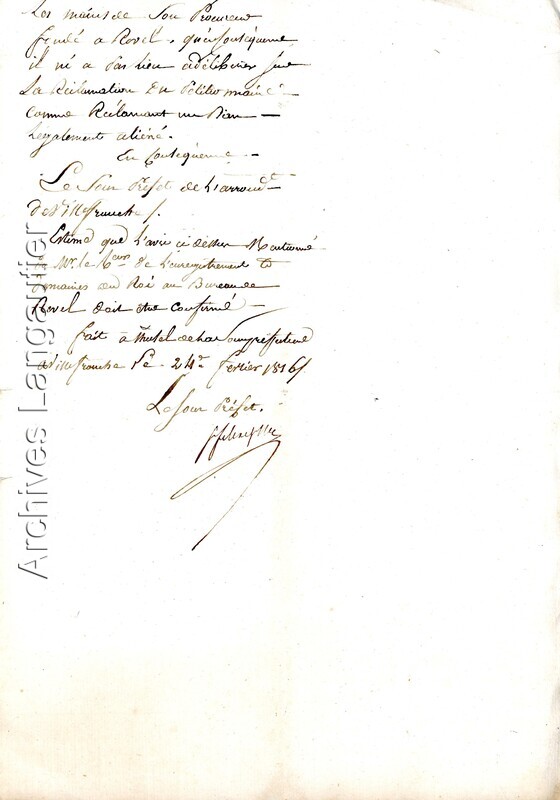 Les mains de Son Procureur
fondé a Revel. qu'en Conséquence
il ni a Pas lieu a délibérer sur
La Réclamation Du Petitionnaire
comme Réclamant un Bien
Legalement aliéné.
En Conséquence
Le Sous Préfet de L'arrond.t
De Villefranche /.
Estime que L'avis ci dessus Mentionné
de Mr. le de L'enregistrement et
Domaines du Roi au Bureau de
Revel doit être confirmé
fait à L'hotel de la Souspréfecture
a Villefranche Le 24 fevrier 1816 /
Le Sous Préfet.
Archives Langautier